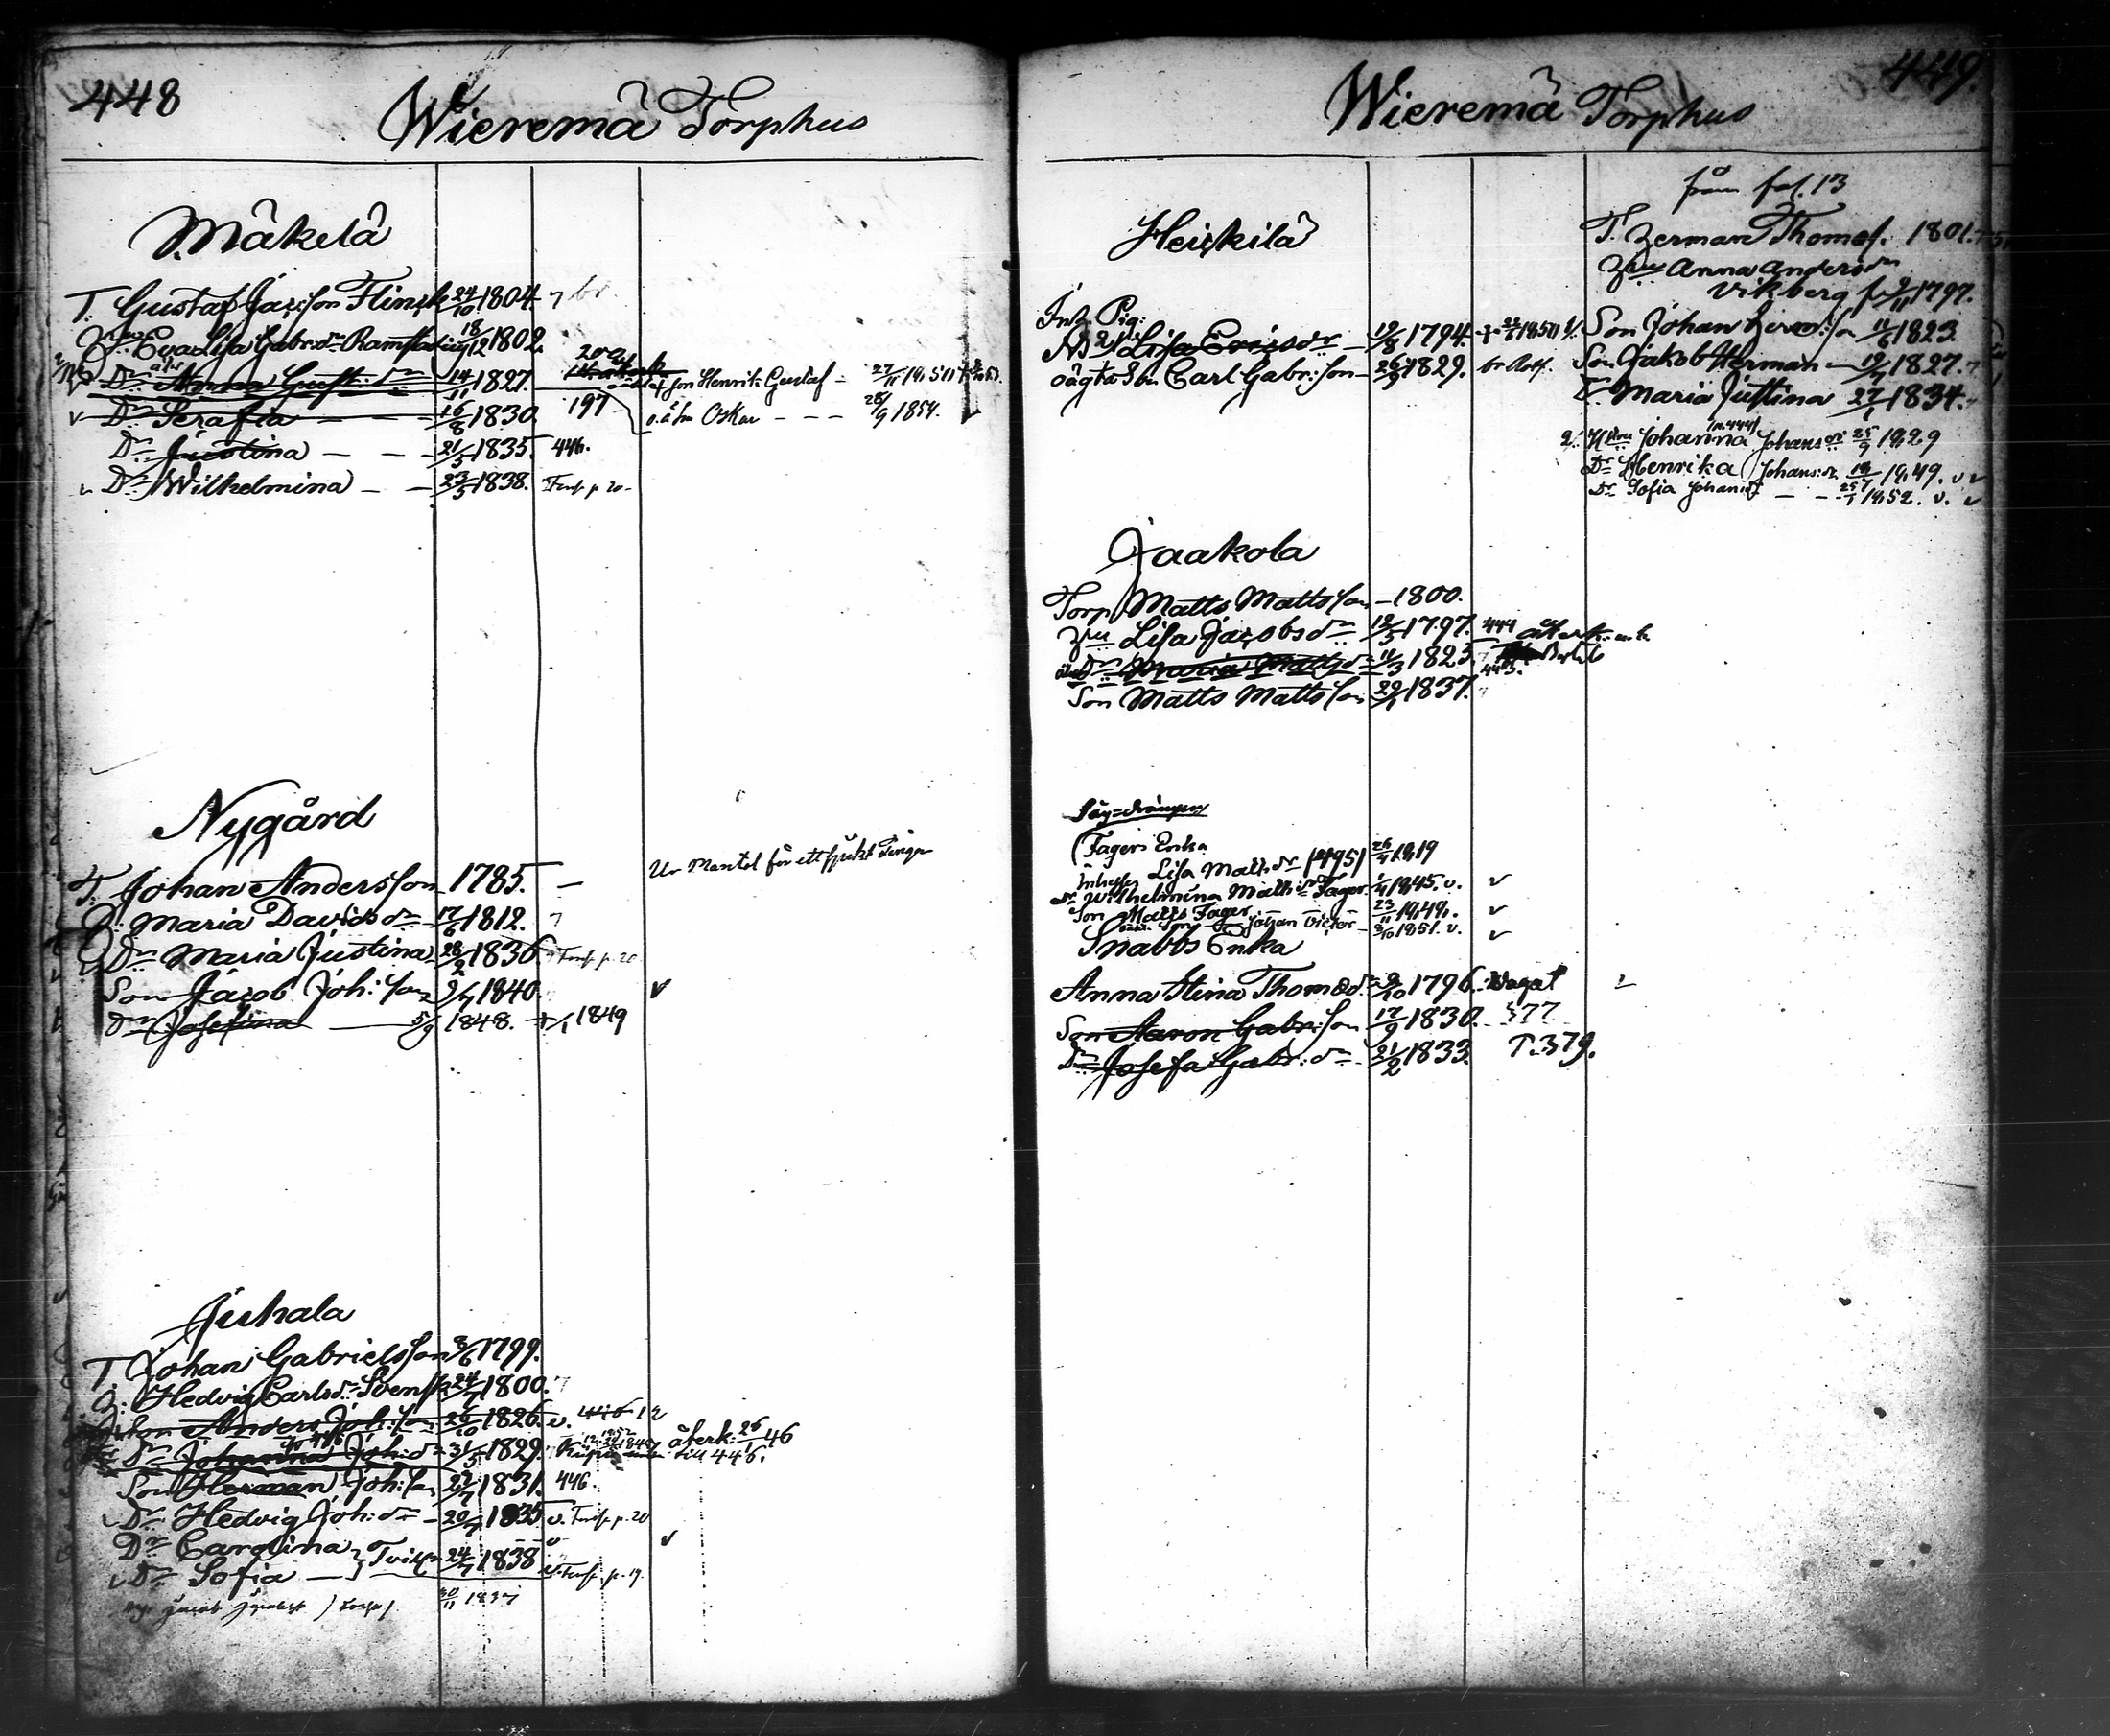 448
Wieremä Torphus
Mäkelä
T. Gustaf Jac:son Flinck 24/10 1804
Eva Lisa Gabr:dr Ramstadius 18/12 1802.
Dr Anna Gust:dr 14/11 1827. son Henrik Gustaf - 27/11
Dr Serafia - - 16/8 1830. 197 o.ä. son Oskar - - - 28/9 1854.
Dr Justina - - 21/5 1835. 446.
Dr Wilhelmina - - 23/5 1838. p. 20
Nygård
Ur Mantal för ett sjukt finger
T. Johan Andersson 1785. -
H. Maria Davidsdr 17/6 1812.
Dr Maria Justina 28/2 1836. p. 20
Son Jacob Joh:son 9/7 1840.
Dr Josefina - 5/9 1848. 1849
Juhala
T. Johan Gabrielsson 8/6 1799.
H. Hedvig Carlsdr Svensk 24/7 1800.
Son Anders Joh:son 26/10 1826. v. 446
Dr Johanna Joh:dr 31/5 1829. återk: 26/1 46 till 446.
Son Herman Joh:son 27/7 1831. 446.
Dr Hedvig Joh:dr - 20/7 1835 v. p. 20
Dr Carolina } Tvill:
Dr Sofia - } 24/7 1838 p. 19.
30/11 1837
449.
Wieremä Torphus
Heickilä
Inh. Pig:
Lisa Ericsdr 19/8 1794.
oägta Son Carl Gabr:son 26/9 1829.
från fol. 13
T. Herman Thomas. 1801.
Hru Anna Andersdr
Vikberg 1797.
Son Johan Herm:son 11/6 1823.
Son Jakob Herman 1827.
Dr Maria Justina 27/1 1834.
Hstru Johanna Johansdr 25/9 1829
Dr Henrika Johans:dr 1849. v
Dr Sofia Johansd - - 25/1 1852. v.
Jaakola
Torp Matts Mattsson - 1800.
Hru Lisa Jacobsdr 12/5 1797. 444
Dr Maria Mattsdr 11/3 1823.
Son Matts Mattsson 29/1 1837.
Såg=drängen
(Fagers Enka
Inhyses Lisa Mattsdr (p 495) 26/4 1819
dr Wilhelmina Matts:dr Fager. 1/4 1845. v.
Son Matts Fager 23/11 1849.
Son Johan Victor 3/10 1851. v.
Snabbs Enka
Anna Stina Thomædr 9/10 1796.
Son Aaron Gabr:son 17/9 1830. 377
Dr Josefa Gabr:dr 21/2 1833. P. 379.